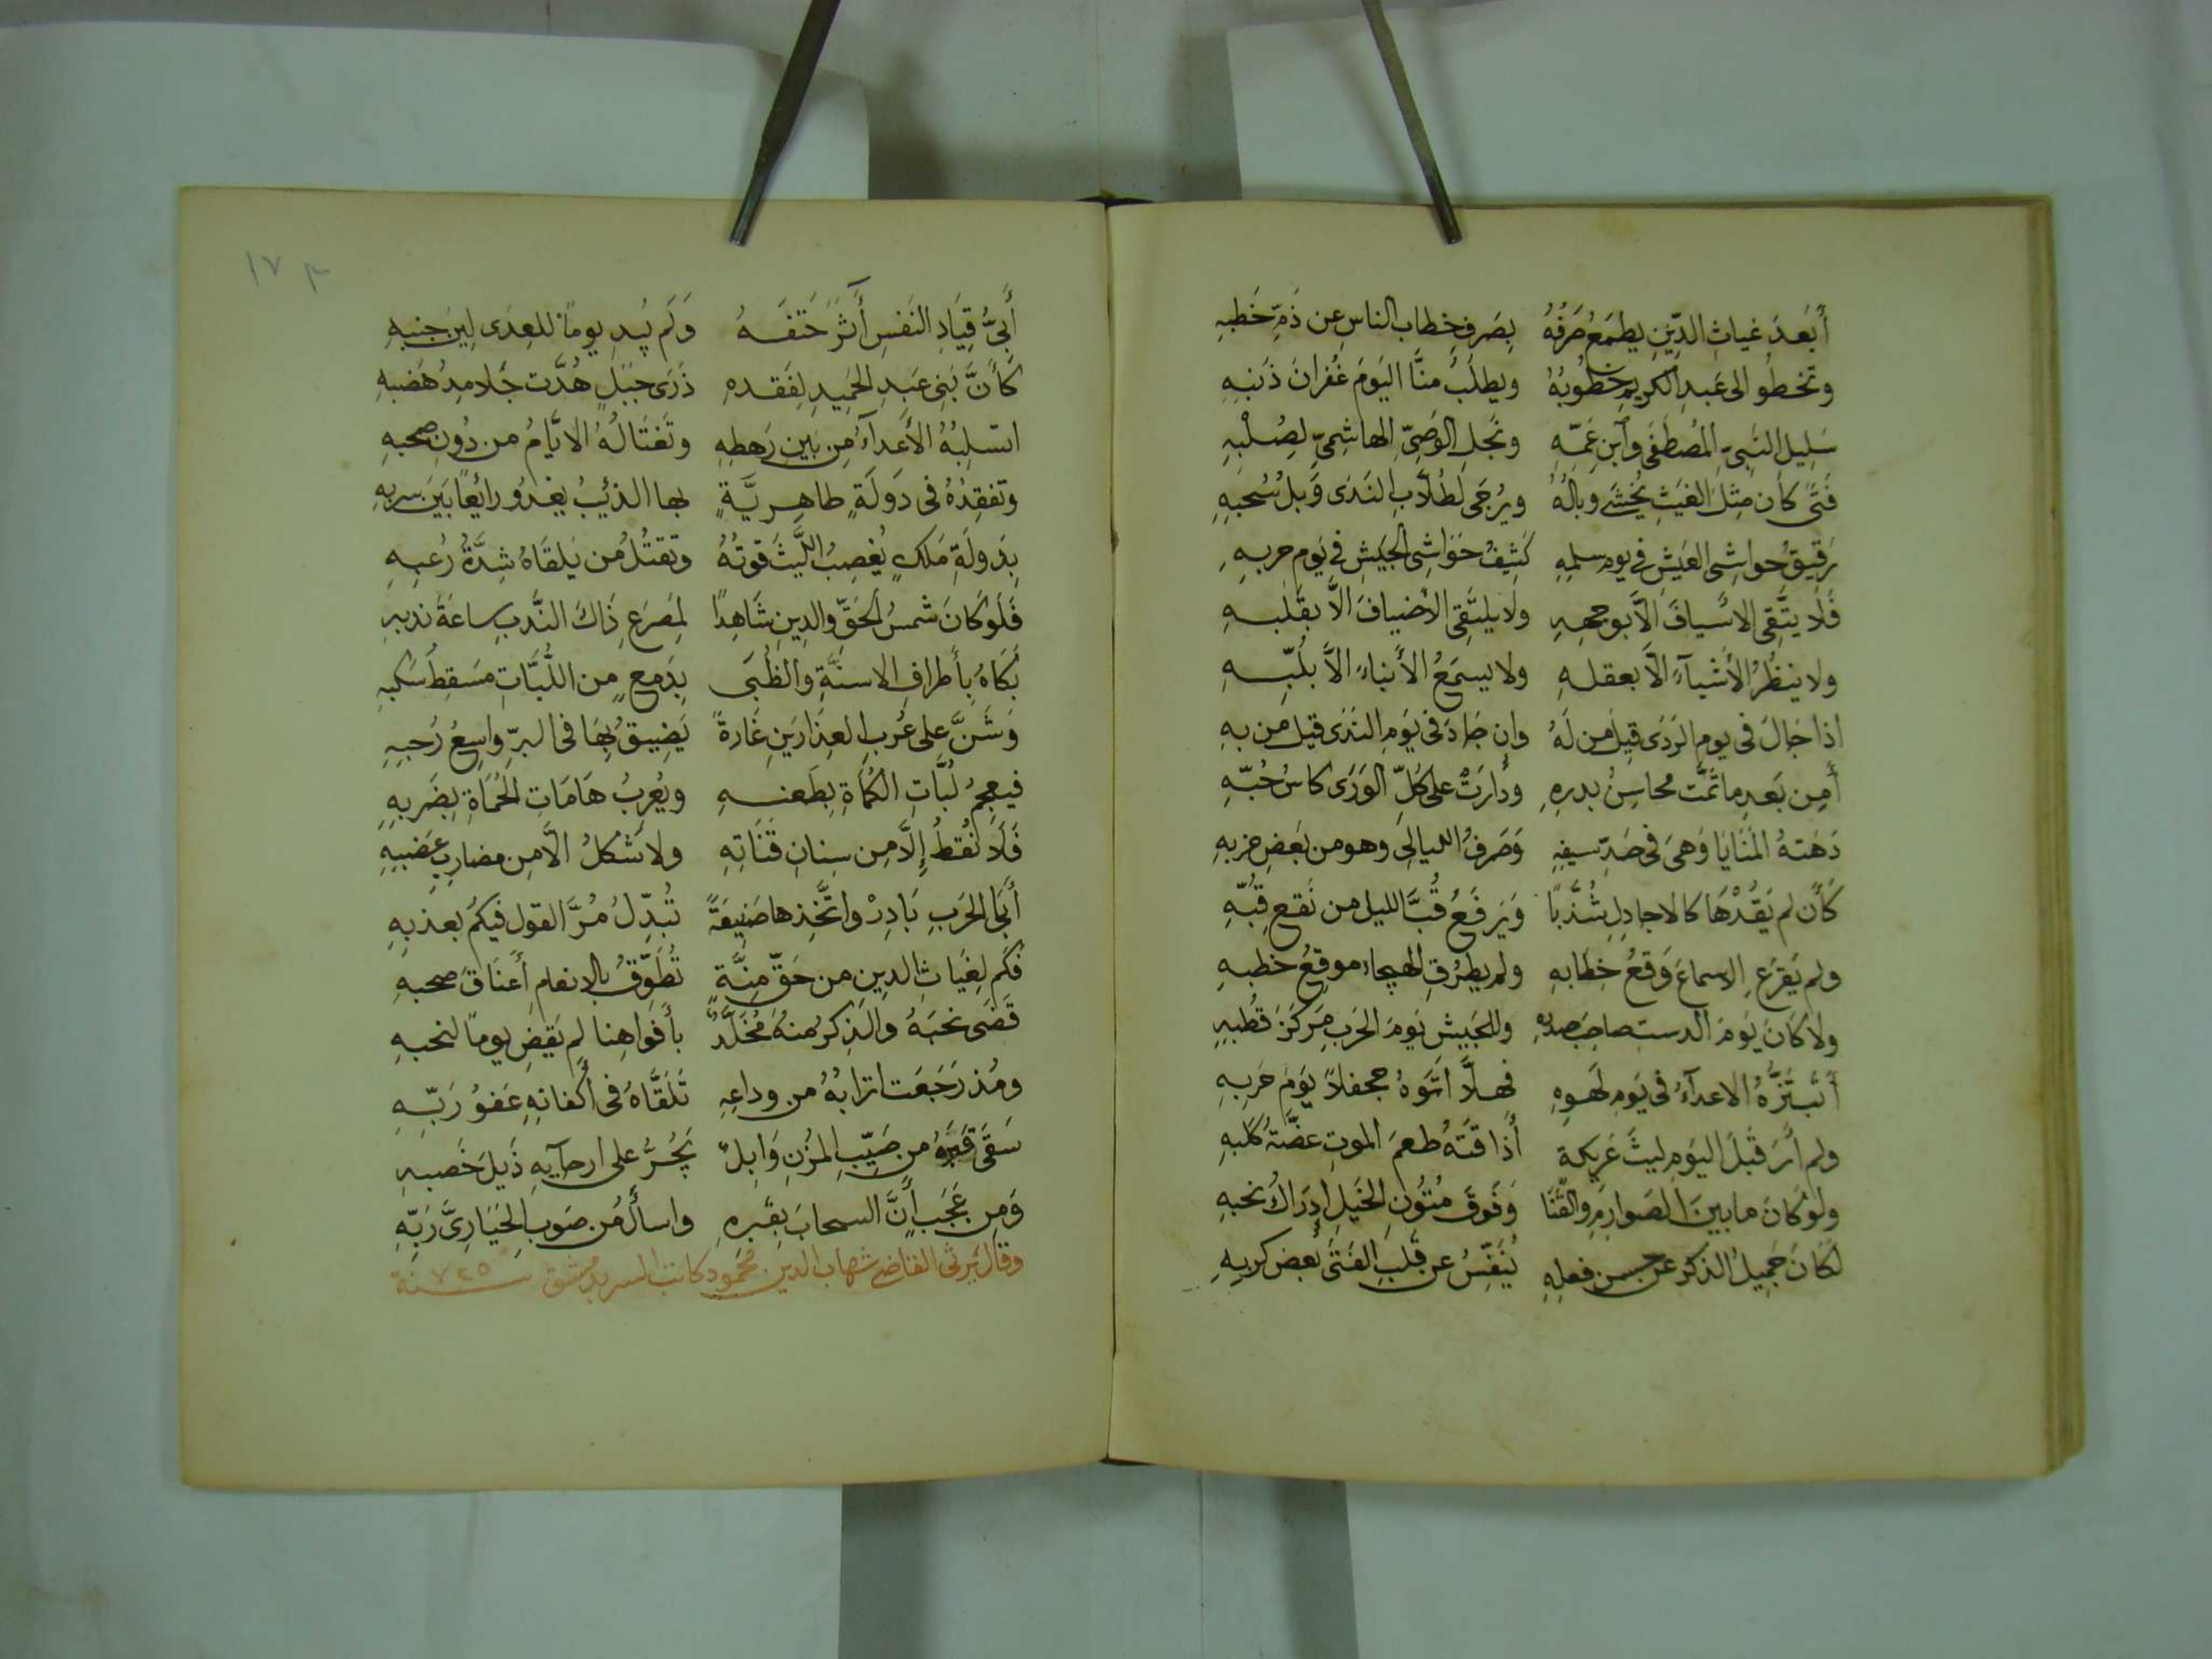 أَبَعدَ غياثِ الدِّينِ يطمَعُ صَرفُهُ بِصَرفِ خِطاب الناسِ عن ذَمِّ خَطبِهِ
وتخطُو الى عَبدِ الكريمِ خُطُوبُهُ ويطلبُ منَّا اليَومَ غُفرانَ ذَنبِهِ
سَلِيلِ النَبىِّ المُصطَفَى وآبنِ عَمِّهِ ونَجلِ الوَصِىِّ الهاشِمِىِّ لِصُلْبِهِ
فَتًى كان مِثلَ الغَيثِ يُخشَى وبالُهُ ويُرجَى لطُلَّابِ النَدَى وَبلُ سُحبِهِ
رَقيقُ حواشِى العَيشِ فى يوم سلمِهِ كَثِيفُ حَوَاشِى الجَيشِ فى يَوم حربِهِ
فَلَا يتَّقِى الاسيافَ الَّا بوجهِهِ ولا يلتَقِى الأضيافَ الَّا بقَلبِهِ
ولا ينظُرُ الأشيآءَ الَّا بعقلهِ ولا يسمَعُ الأنباءَ الَّا بلُبِّهِ
اذا جَالَ فى يوم الرَدَى قيل من لَهُ وان جَادَ فى يَومِ النَدَى قيل من بهِ
أَمِن بَعدِ ما تَمَّت محاسِنُ بدرِهِ ودُارَتْ على كلِّ الوَرَى كاسُ حُبِّهِ
دَهَتهُ المَنَايَا وَهىَ فى حَدِّ سيفِهِ وَصَرفُ الليالِى وهو من بَعضِ حزبِهِ
كَأَن لم يَقُدْهَا كالاجادِلِ شُذَّبًا وَيَرفَعُ قُبَّ الليل من نَقعِ قُبِّهِ
ولم يَقرَعِ الاسماعَ وَقعُ خِطابهِ ولم يطرُقِ الهيجاءَ موقِعُ خطبهِ
ولا كَانَ يَومَ الدستِ صاحِبَ صدرِهِ وللجَيشِ يَومَ الحَربِ مَركَزَ قُطبِهِ
أَتَبتَزُّهُ الاعدآءُ فى يَومِ لَهوِهِ فهلَّا اتَوهُ جحفلاً يَومَ حَربِهِ
ولم أرَ قَبلَ اليَومِ ليثَ عَرِيكة أَذاقَتهُ طعمَ الموتِ عضَّةُ كَلبِهِ
ولو كَانَ ما بينَ الصَوارِمِ والقَنَا وَفَوقَ مُتُونِ الخَيلِ إدرَاكُ نحبهِ
لكَانَ جَمِيلُ الذكر عن حُسنِ فعلِهِ يُنَفِّسُ عن قَلبِ الفَتَى بُعضَ كربِهِ
١٧٣
أَبِىُّ قِيَادِ النَفسِ أَثَرَ حَتفَهُ وَلَم يُبدِ يوماً للعِدَى لِينَ جنبِهِ
كأَنَّ بَنِى عَبدِ الحَمِيدِ لِفَقدِهِ ذَرَى جَبَلٍ هُدَّت جَلامِدُ هَضبِهِ
اتسلِبُهُ الأَعدآءُ مِن بَينِ رَهطِهِ وتَغتَالُهُ الايَّامُ من دُونِ صحبهِ
وتفقِدُهُ فى دَولَةٍ طاهِريَّةٍ بها الذئبُ يغدُو رايعًا بَينَ سربهِ
بِدَولَةِ مَلكٍ يُغصِبُ اللَّيثَ قوتُهُ وتقتُلُ من يَلقَاهُ شِدَّةُ رُعبِهِ
فَلَو كَانَ شمسُ الحَقِّ والدِينِ شَاهِدًا لِمَصرَعِ ذَاكَ النَّدبِ ساعَةَ ندبهِ
بَكَاهُ بِأَطرافِ الاسنَّةِ والظُبَى بِدَمعٍ من اللَّبَّاتِ مَسقِطُ سَكبِهِ
وَشَنَّ على عُربِ العِذَارَينِ غَارةً يَضِيقُ بِهَا فى البرِّ واسِعُ رُحبِهِ
فيعجِمُ لُبَّاتِ الكُمَاةِ بِطَعنِهِ ويُعرِبُ هَامَاتِ الحُمَاةِ بِضَربِهِ
فَلَا نُقَطٌ إِلَّا مِن سِنانِ قَنَاتِهِ ولا شَكلُ الَّا مِن مضارِبِ عَضبِهِ
أَبَا الحَربِ بَادِرْ واتَّخِذها صَنِيعَةً تُبدِّلُ مُرَّ القول فيكُم بعذبِهِ
فكَم لِغيَاثِ الدِينِ من حَقِّ مِنَّةٍ تُطَوِّقُ بالانعامِ أَعنَاقَ صحبهِ
قَضَى نحبَهُ والذِكرُ منهُ مُخَلَّدٌ بأَفوَاهِنا لم يَقضِ يومًا لنحبهِ
ومُذ رَجَعَت اترابُهُ من وداعِهِ تَلَقَّاهُ فى أَكفانهِ عَفوُ رَبِّهِ
سَقَى قَبرَهُ من صَيِّبِ المُزنِ وَابِلٌ يَجُرُّ على ارجآيهِ ذَيلَ خَصبِهِ
وَمِن عَجَبٍ أَنَّ السحابَ بِقَبرِهِ واسأَلُ من صَوبِ الحَيَا رِىَّ رَبِّهِ
وقال يَرثى القاضى شهاب الدين محمود كاتب السر بدمشق سنة ٧٢٥